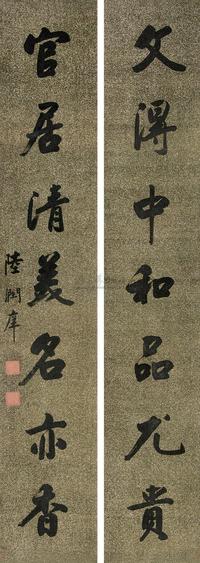 文得中和品尤貴
官居清美名亦香
陸潤庠